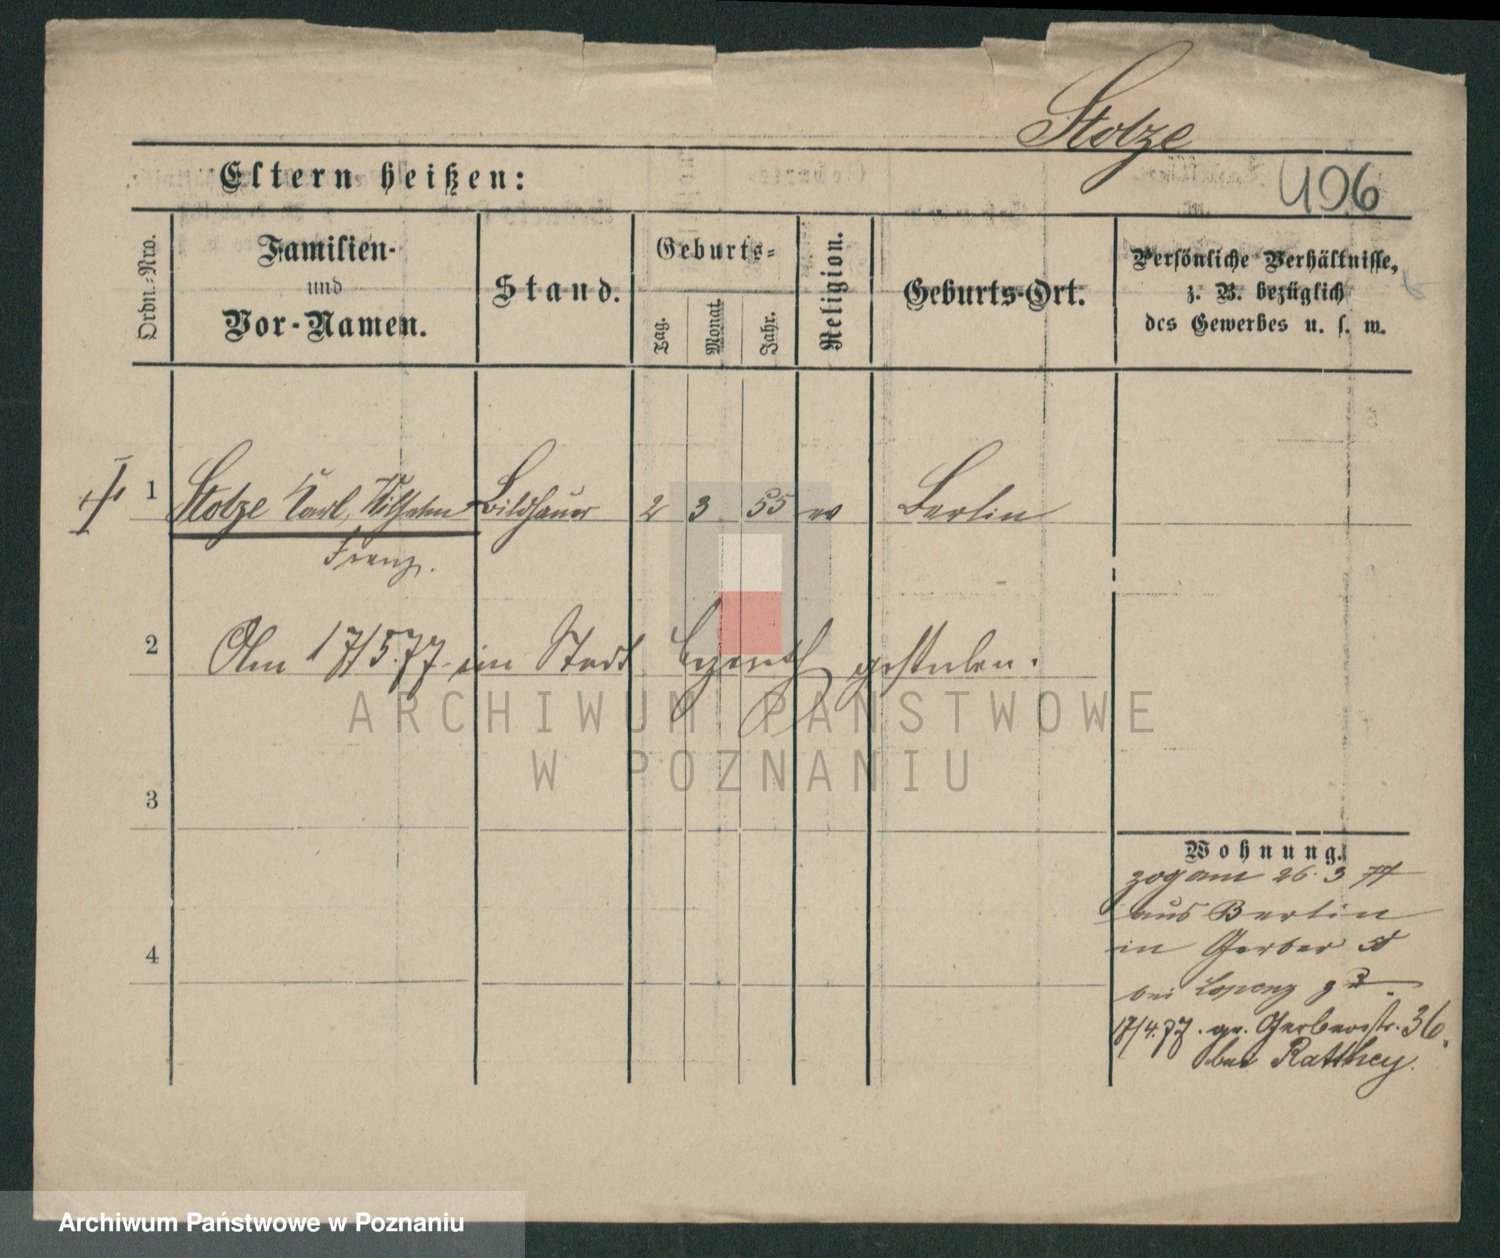 Stolze
496
Eltern heißen:
Ordn.-Nro.
Familien-
und
Vor-Namen.
Stand.
Geburts-
Tag.
Monat.
Jahr.
Religion.
Geburts-Ort.
Persönliche Verhältnisse,
z. B. bezüglich
des Gewerbes u. s. w.
1 Stolze Karl, Wilhelm Bildhauer 2 3 55 ev Berlin
Franz.
2 Am 17/5.77 im Stadt gestorben.
ARCHIWUM PAŃSTWOWE
W POZNANIU
3
Wohnung.
zog am 26.3 77
aus Berlin
4
in Gerber
bei
17/4.77. gr. Gerberstr. 36.
bei Ratthey.
Archiwum Państwowe w Poznaniu